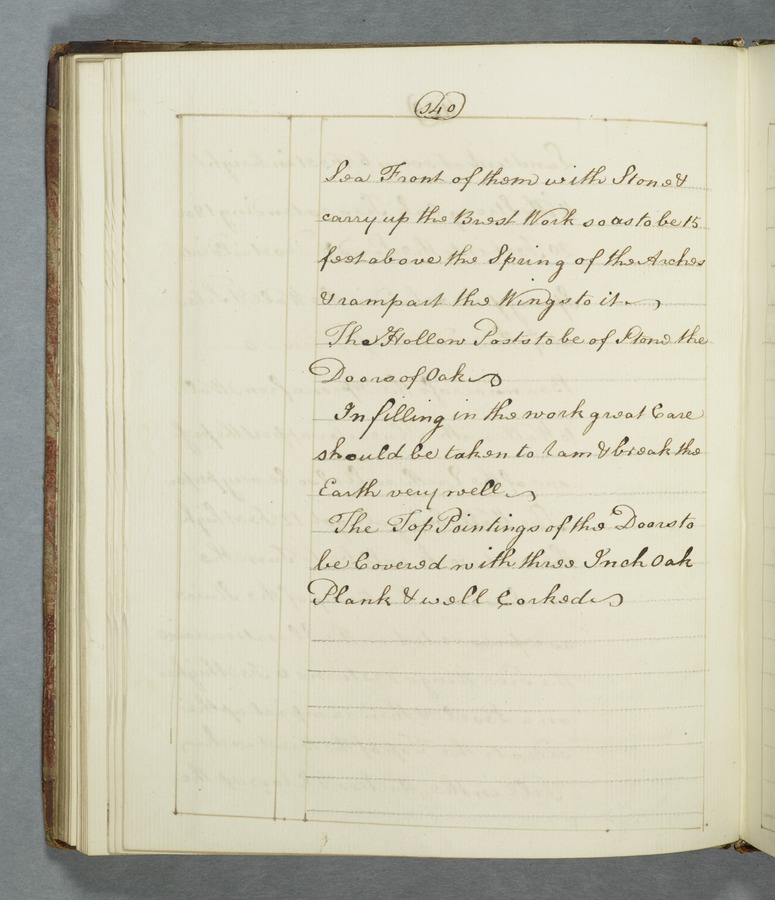 340
Sea Front of them with Stone &
carry up the Brest Work so as to be 15
feet above the Spring of the Arches
& rampart the Wings to it
The Hollow Posts to be of Stone the
Doors of Oak
In filling in the work great Care
should be taken to Ram & break the
Earth very well
The Top Pointings of the Doors to
be Covered with three Inch Oak
Plank & well Corked